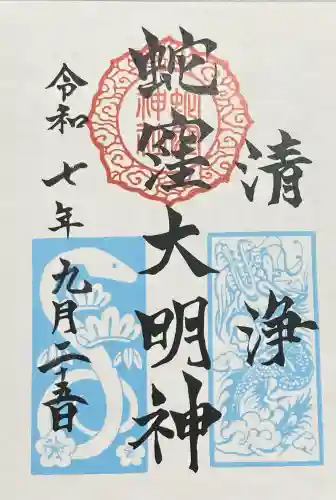 清浄
蛇窪大明神
令和七年九月二十五日
蛇窪神社